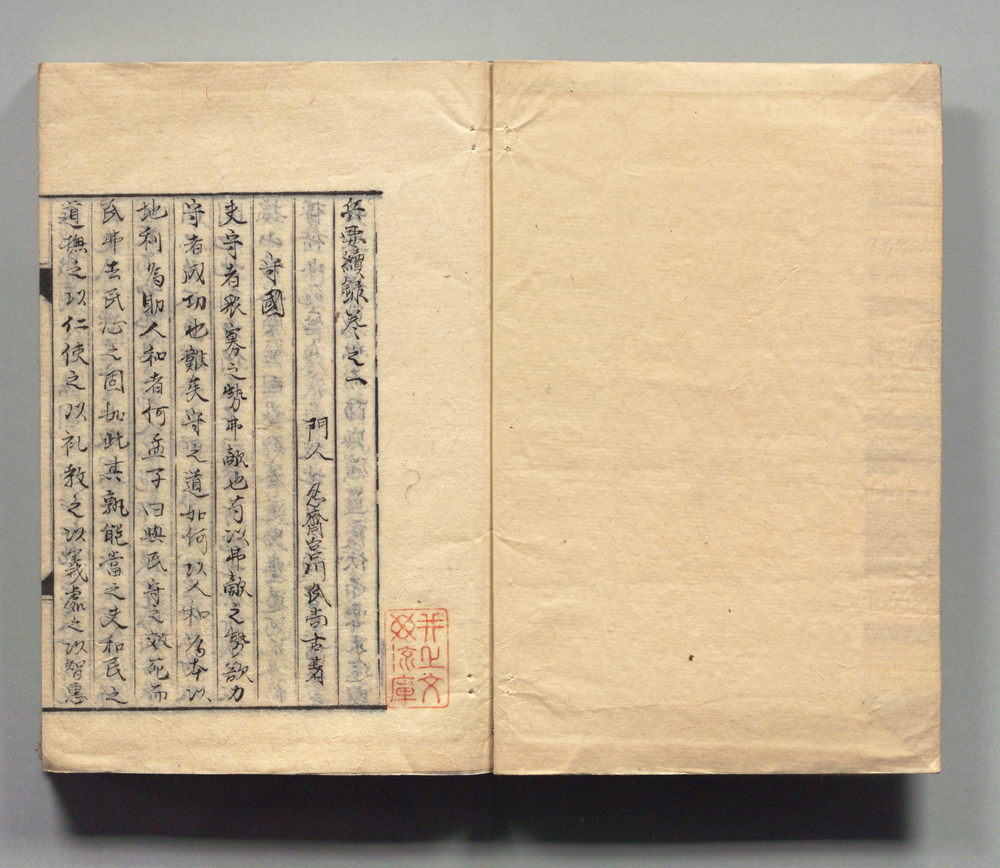 兵要續録巻之二
門人 忍齋宮川氏尚古著
守國
夫守者衆寡之勢弗敵也苟以弗敵之勢欲力
守者成功也難矣守之道如何以人和爲本以
地利爲助人和者何孟子曰與民守之效死而
民弗去民心之固如此其孰能當之夫和民之
道撫之以仁使之以礼教之以義慮之以智惠